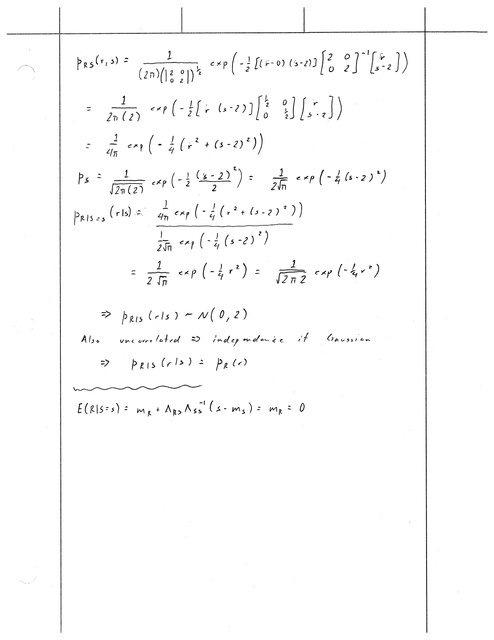 p_RS(r,s) = 1 / ((2π)(|2 0; 0 2|)^½) exp(-½ [(r-0) (s-2)] [2 0; 0 2]^-1 [r; s-2])
= 1 / (2π(2)) exp(-½ [r (s-2)] [½ 0; 0 ½] [r; s-2])
= 1/4π exp(-¼ (r² + (s-2)²))
p_S = 1/√(2π(2)) exp(-½ (s-2)²/2) = 1/(2√π) exp(-¼ (s-2)²)
p_R|S=s (r|s) = 1/4π exp(-¼ (r² + (s-2)²)) / 1/(2√π) exp(-¼ (s-2)²)
= 1/(2√π) exp(-¼ r²) = 1/√(2π2) exp(-¼ r²)
⇒ p_R|S (r|s) ~ N(0,2)
Also uncorrelated ⇒ independence if Gaussian
⇒ p_R|S (r|s) = p_R(r)
E(R|S=s) = m_R + Λ_RS Λ_SS^-1 (s - m_s) = m_R = 0